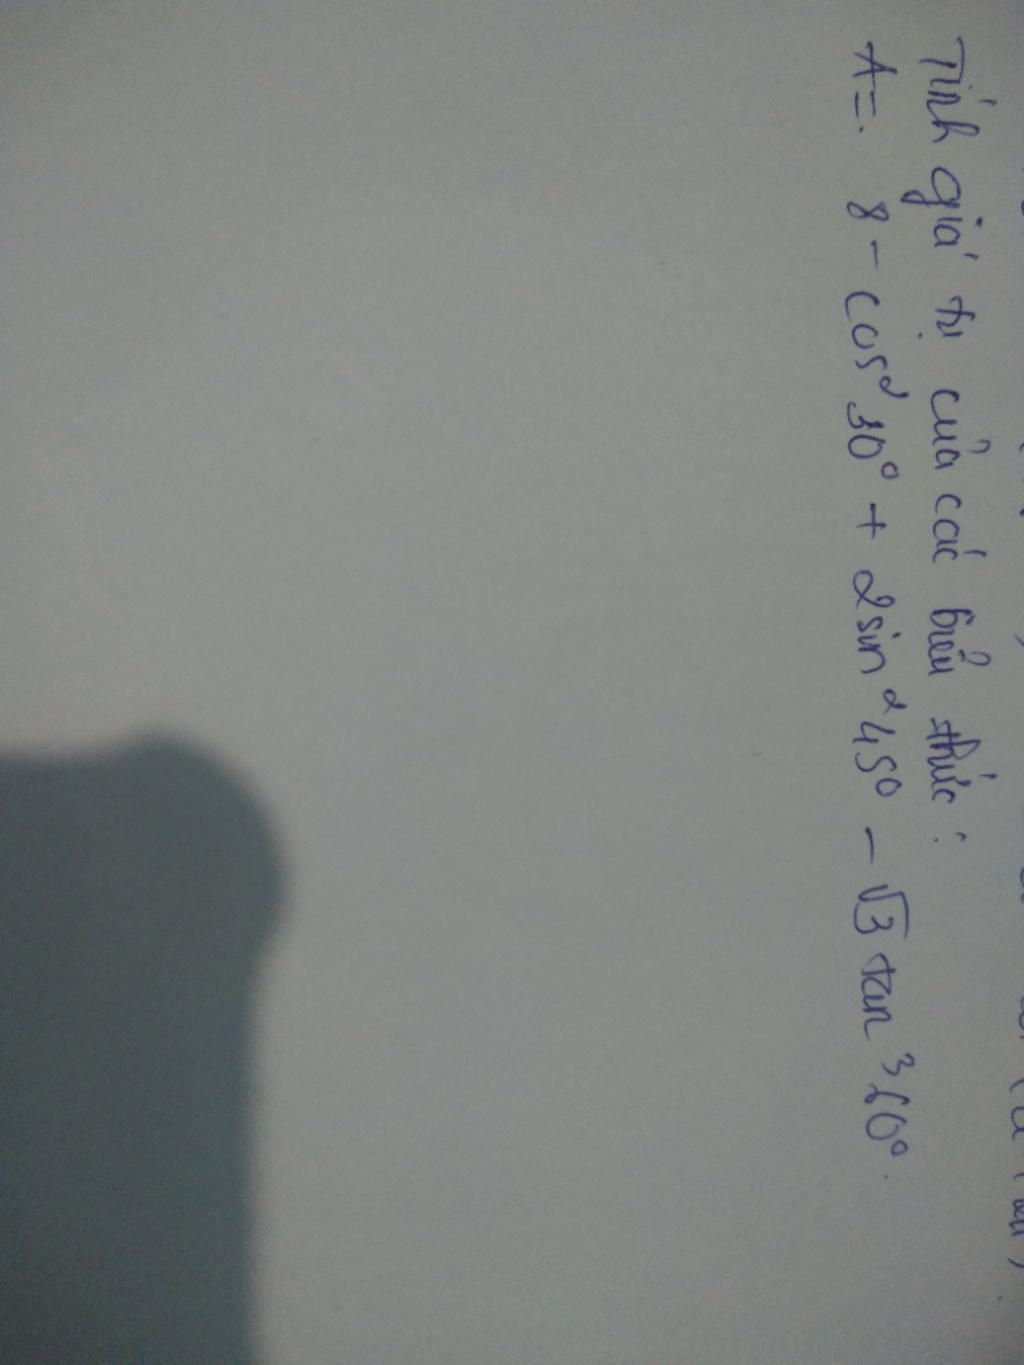 Tính giá trị của các biểu thức:
A = 8 - cos² 30° + 2 sin² 45° - √3 tan³ 60°.